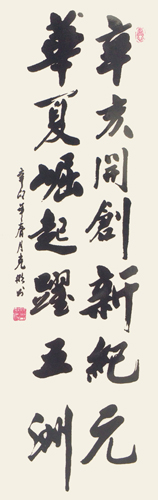 辛亥開創新紀元
華夏崛起躍五洲
辛卯年